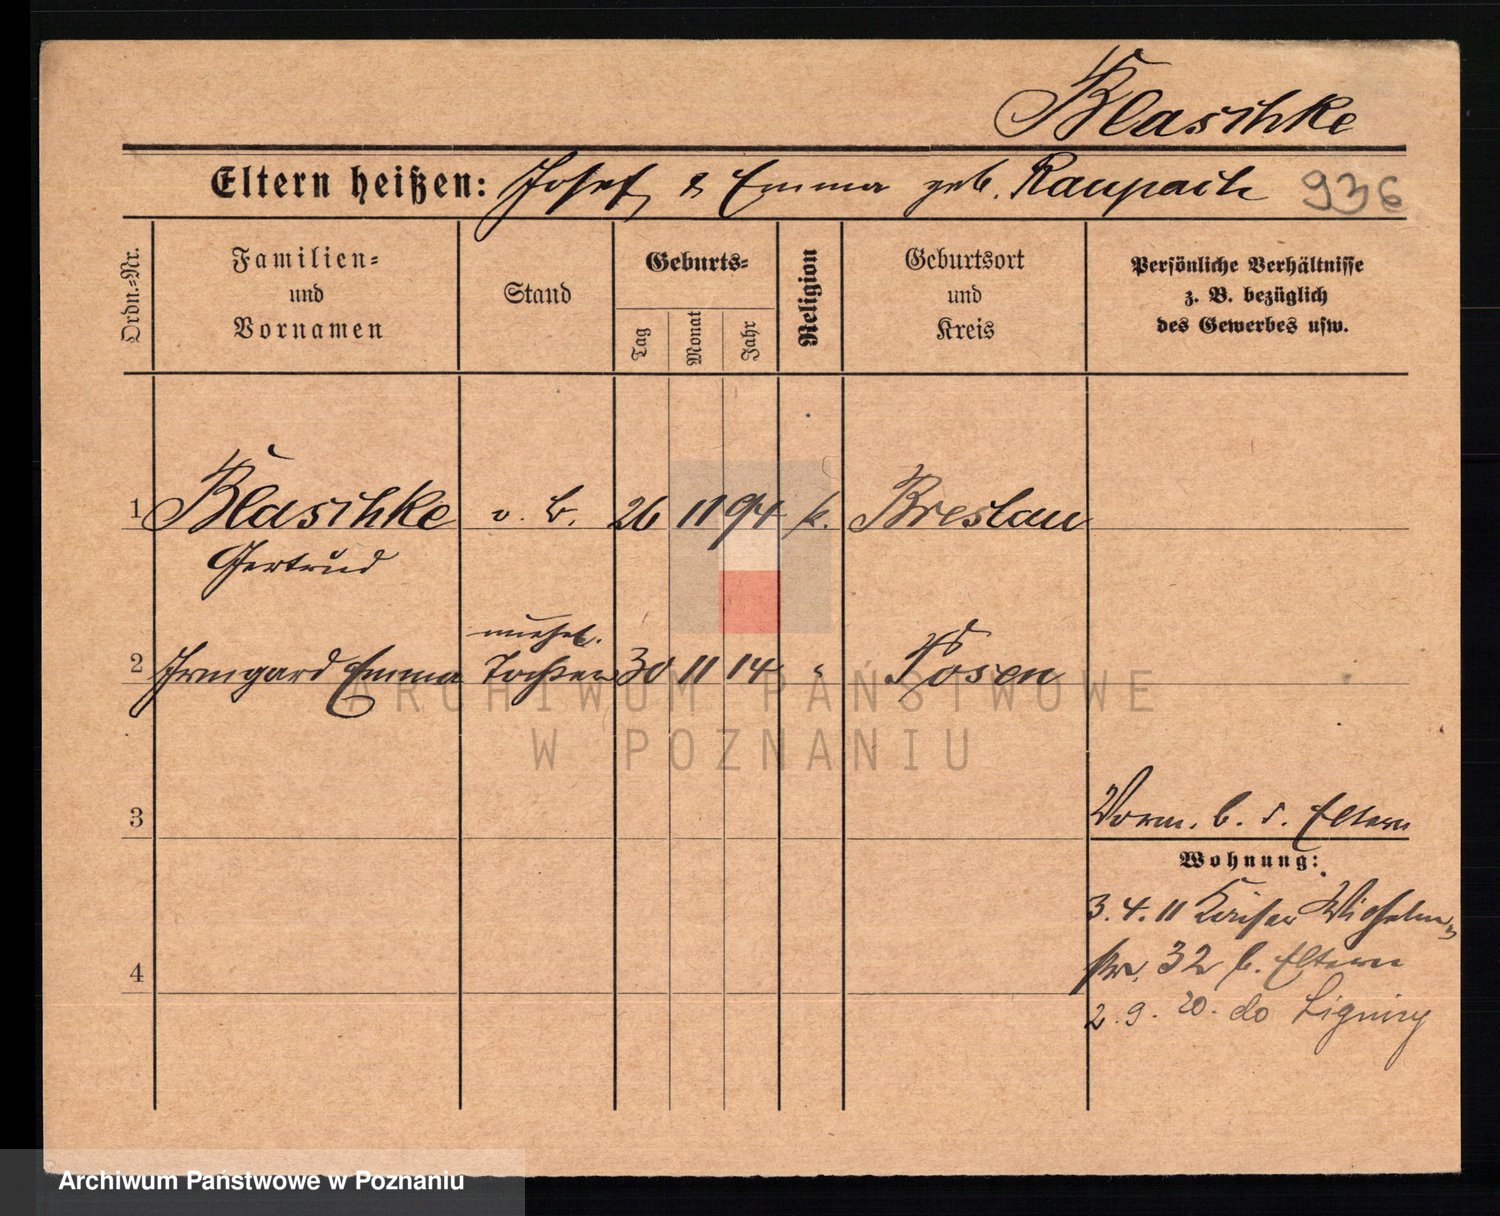 Blaschke
Eltern heißen: Josef & Emma geb. Raupach 936
Ordn.-Nr.
Familien-
und
Vornamen
Stand
Geburts-
Tag
Monat
Jahr
Religion
Geburtsort
und
Kreis
Persönliche Verhältnisse
z. B. bezüglich
des Gewerbes usw.
1 Blaschke o. B. 26 11 94 k. Breslau
Gertrud
unehel.
2 Irmgard Emma Tochter 30 11 14 " Posen
ARCHIWUM PAŃSTWOWE
W POZNANIU
3
Vorm. b. d. Eltern
Wohnung:
3.4.11 Kaiser Wilhelm-
str. 32 b. Eltern
4
2.9.20. do Lignicy
Archiwum Państwowe w Poznaniu